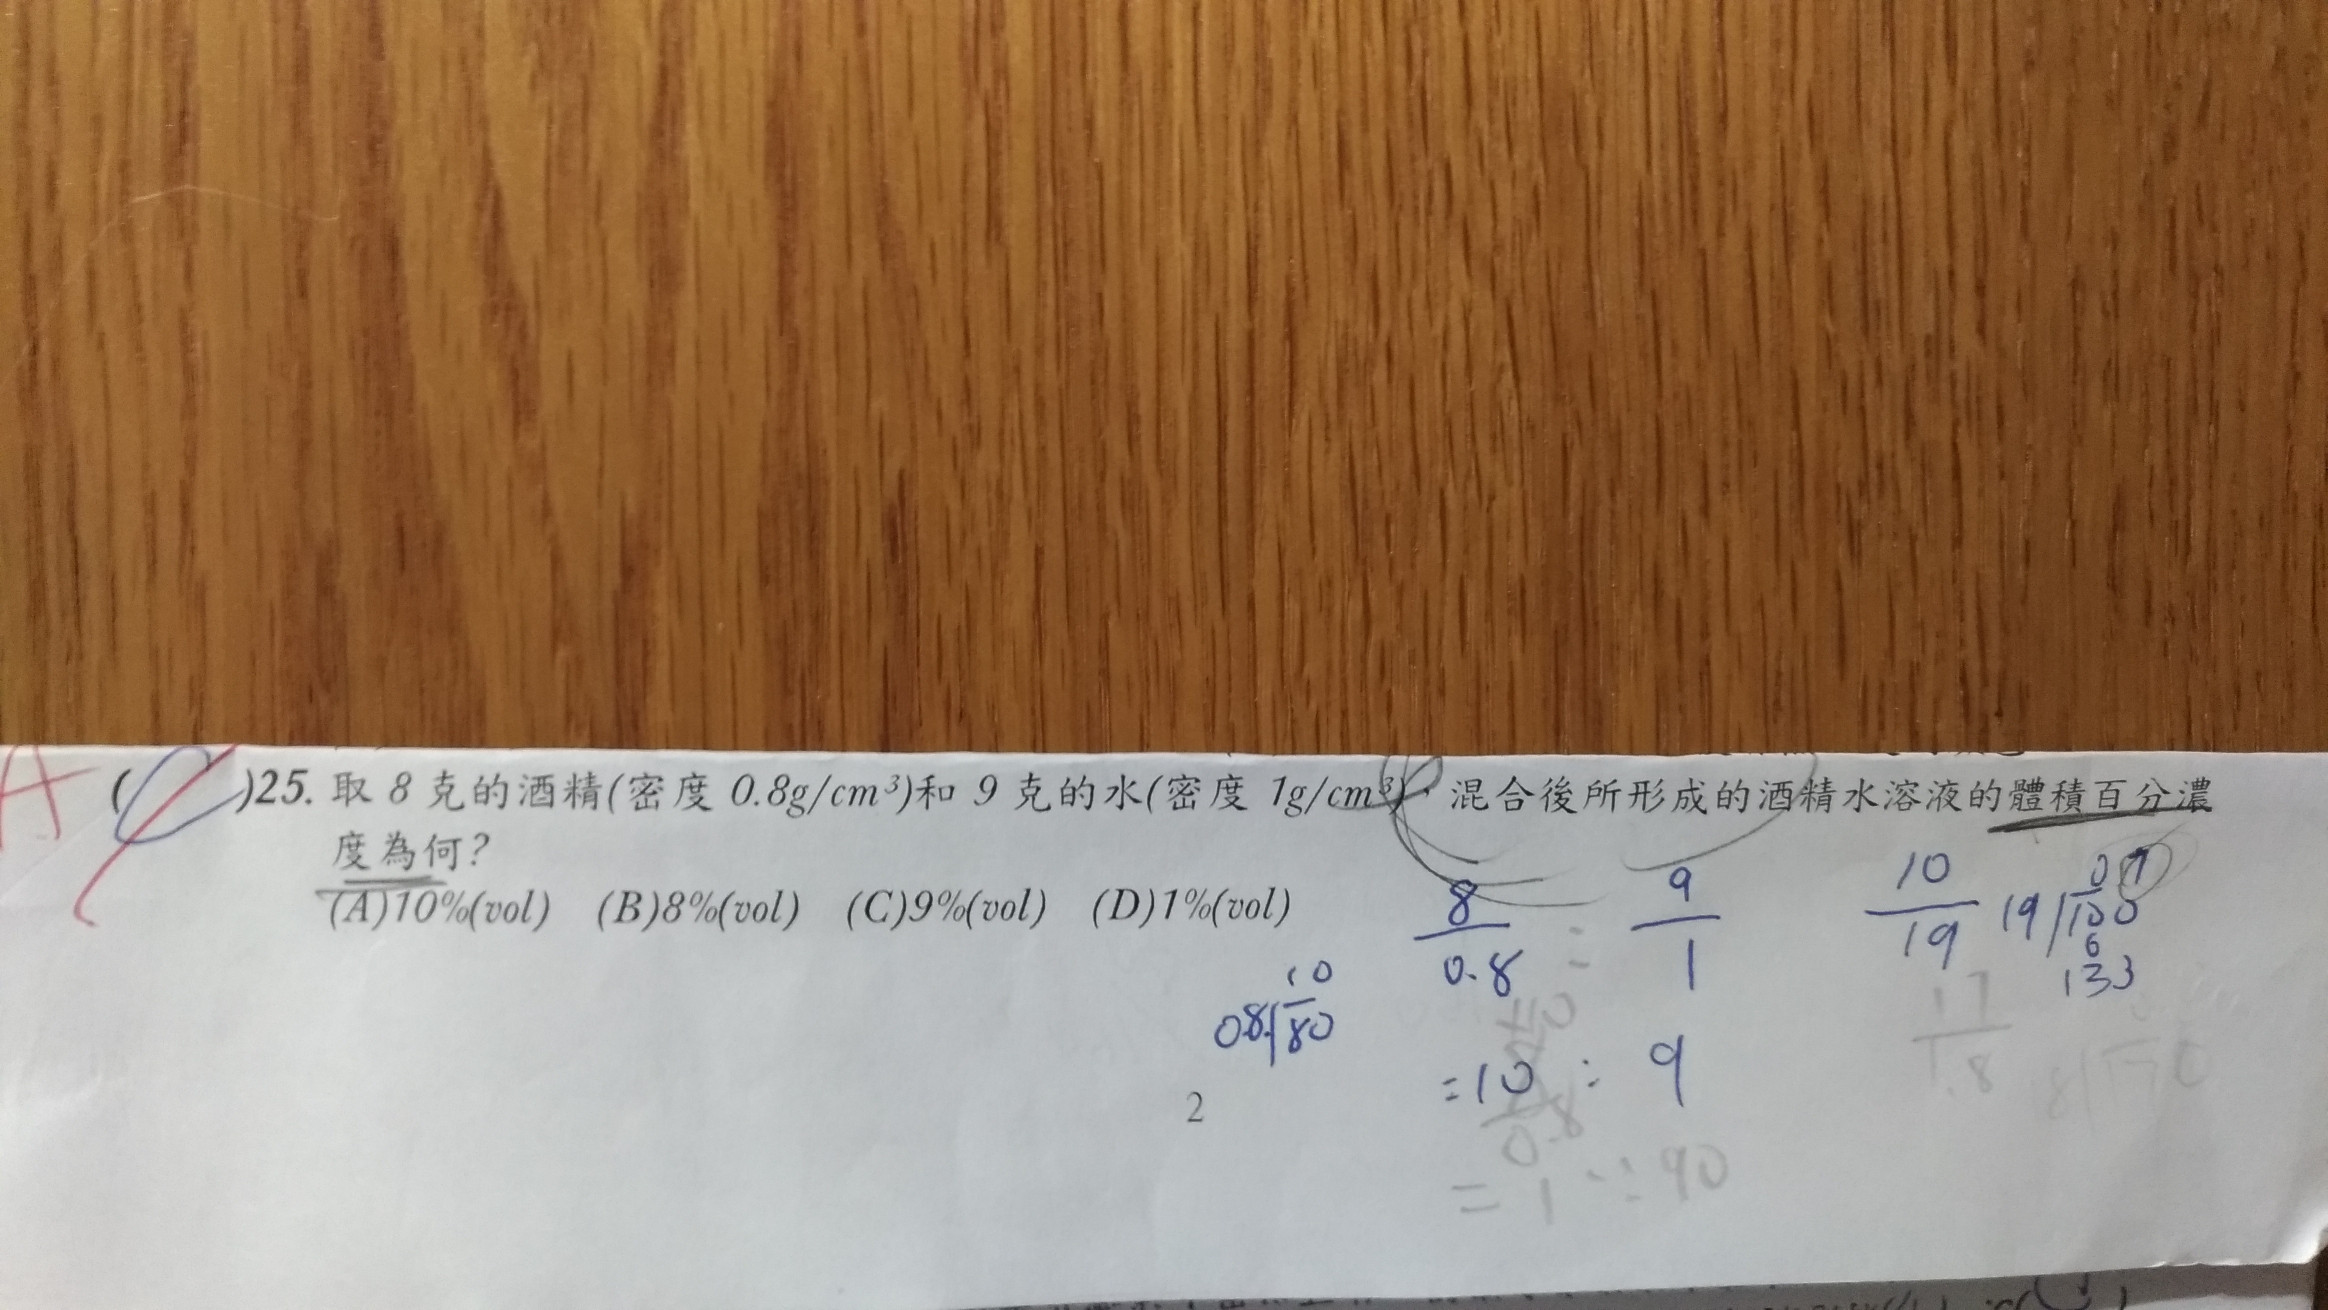 A
( C )25. 取 8 克的酒精(密度 0.8g/cm³)和 9 克的水(密度 1g/cm³),混合後所形成的酒精水溶液的體積百分濃
度為何?
(A)10%(vol) (B)8%(vol) (C)9%(vol) (D)1%(vol)
8/0.8 : 9/1
=10 : 9
10
0.8/80
10/19
19/100
133
= 1 : 90
17/1.8
2